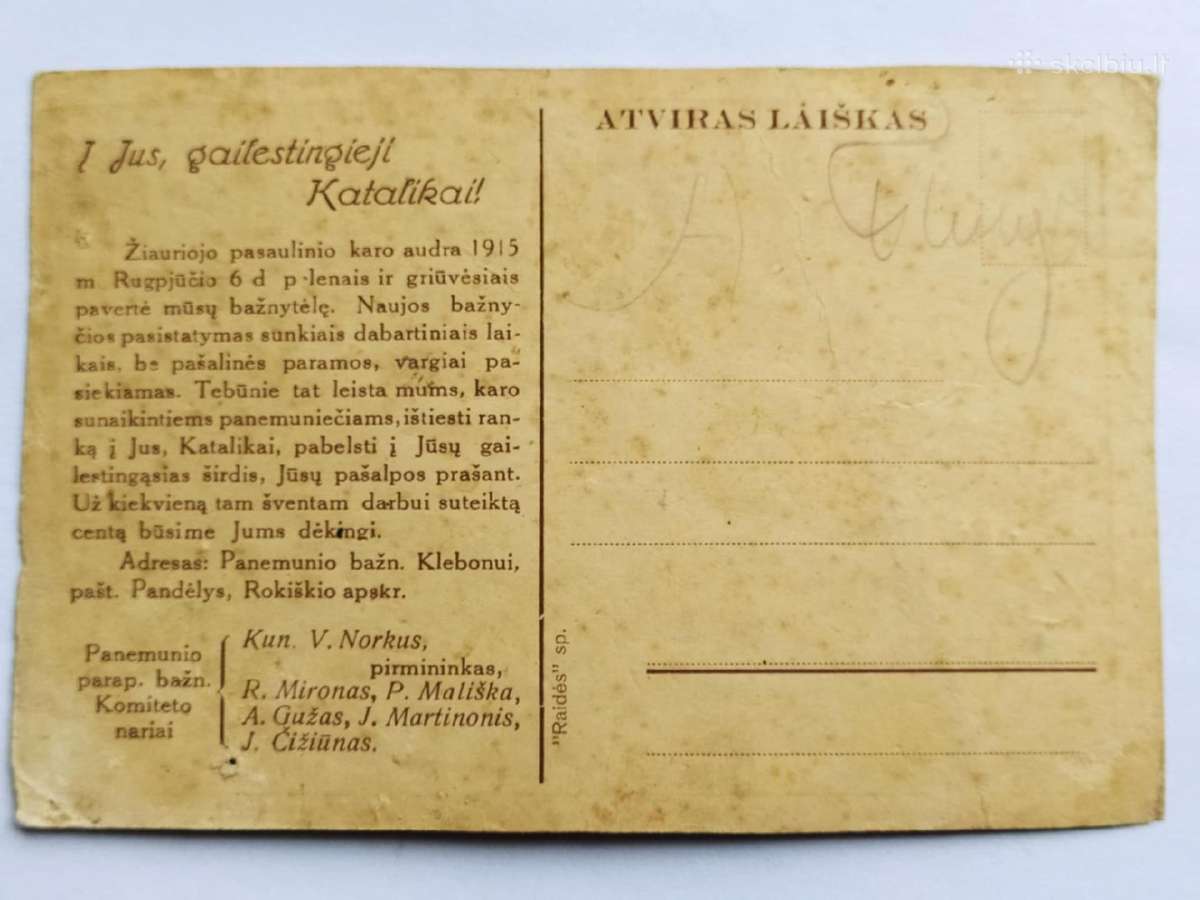 Į Jus, gailestingieji
Katalikai!
Žiauriojo pasaulinio karo audra 1915
m Rugpjūčio 6 d p lenais ir griūvėsiais
pavertė mūsų bažnytėlę. Naujos bažny-
čios pasistatymas sunkiais dabartiniais lai-
kais, be pašalinės paramos, vargiai pa-
siekiamas. Tebūnie tat leista mums, karo
sunaikintiems panemuniečiams, ištiesti ran-
ką į Jus, Katalikai, pabelsti į Jūsų gai-
lestingąsias širdis, Jūsų pašalpos prašant.
Už kiekvieną tam šventam darbui suteiktą
centą būsime Jums dėkingi.
Adresas: Panemunio bažn. Klebonui,
pašt. Pandėlys, Rokiškio apskr.
Panemunio
parap. bažn.
Komiteto
nariai
Kun. V. Norkus,
pirmininkas,
R. Mironas, P. Mališka,
A. Gužas, J. Martinonis,
J. Čižiūnas.
"Raidės" sp.
ATVIRAS LAIŠKAS
A
skelbiu.lt